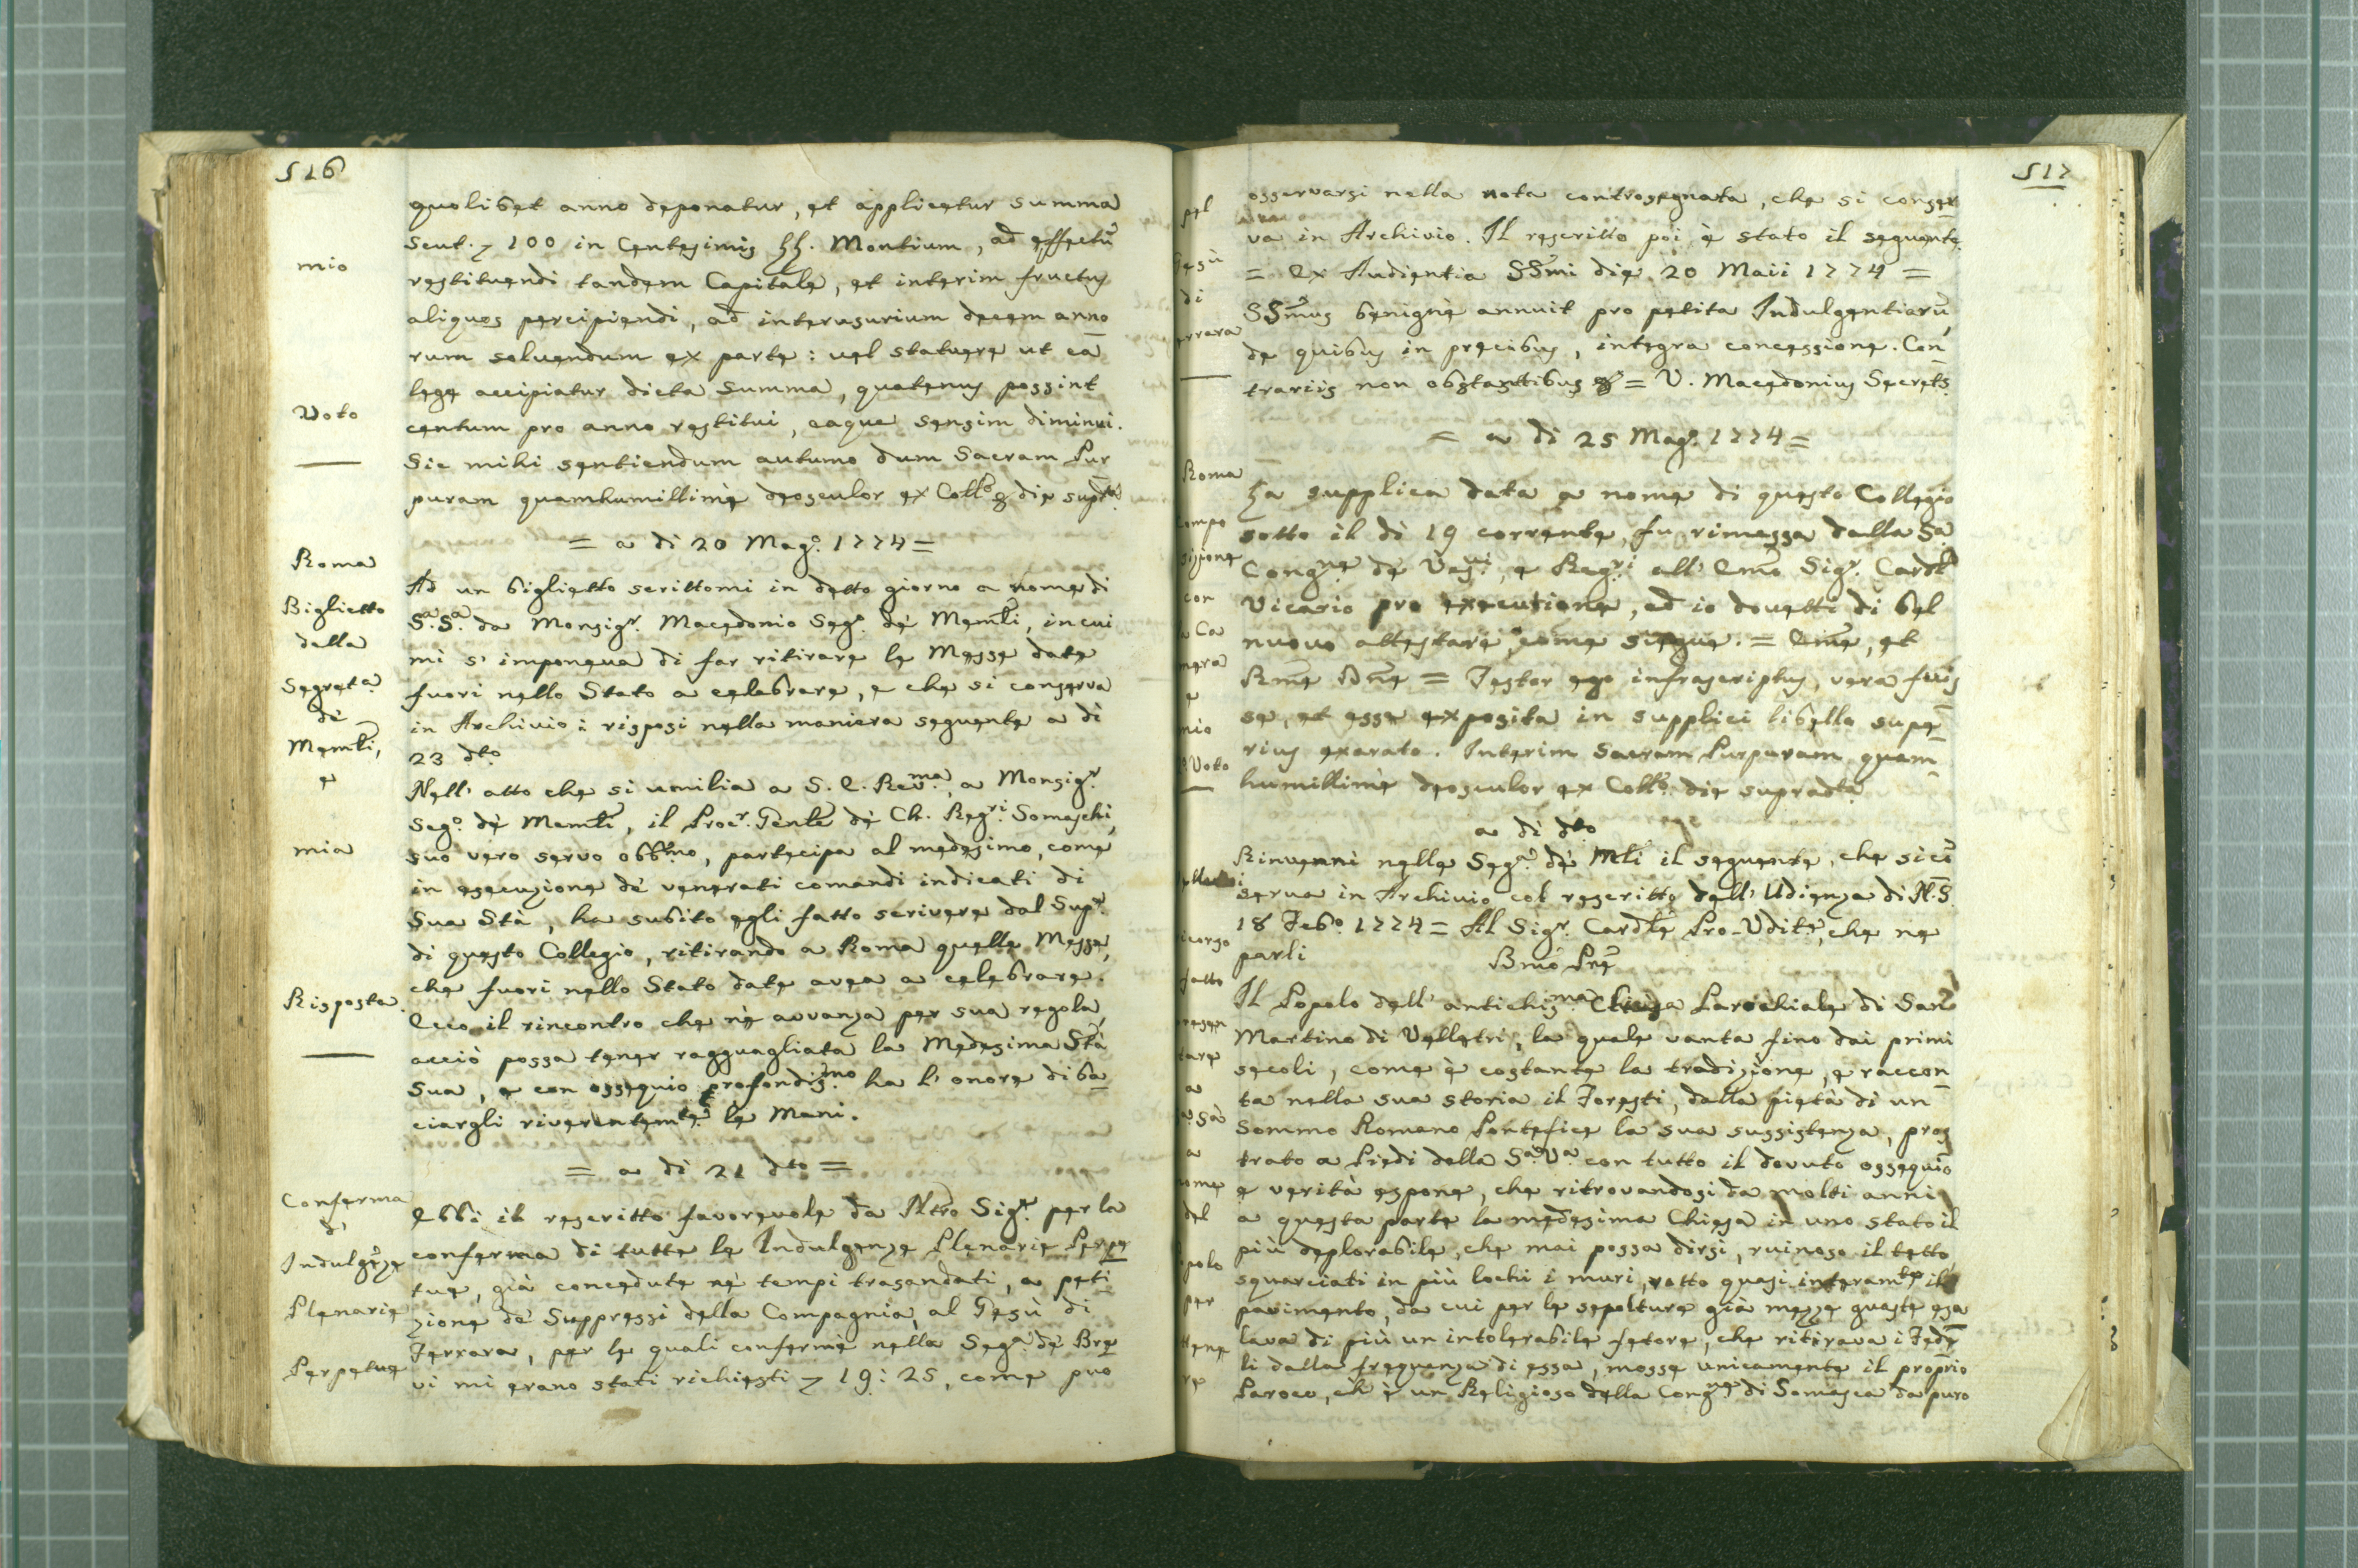 516
mio
Voto
Roma
Biglietto
della
Segret.a
dè
Memli,
e
mia
Risposta.
Conferma
d'
Indulgẽze
Plenarie
Perpetue
quolibet anno deponatur, et applicetur summa
Scut. 100 in Centesimis LL. Montium, ad effectũ
restituendi tandem Capitale, et interim fructus
aliquos percipiendi, ad interusurium decem anno
rum solvendum ex parte: vel statuere ut eã
lege accipiatur dicta summa, quatenus possint
centum pro anno restitui, eaque sensim diminui.
Sic mihi sentiendum autumo dum Sacram Pur
puram quamhumillimè deosculor ex Collo die supta.
= a di 20 Mag.o 1774 =
Ad un biglietto scrittomi in detto giorno a nome di
S.a S.a da Monsig.r Macedonio Seg.o dè Memli, in cui
mi s' imponeva di far ritirare le Messe date
fuori nello Stato a celebrare, e che si conserva
in Archivio: risposi nella maniera seguente a dì
23 dto.
Nell' atto che si umilia a S. E. Rev.ma, a Monsig.r
Seg.o dè Memli, il Proc.r Genle dè Ch. Reg.ri Somaschi,
suo vero servo obb̃mo, partecipa al medesimo, come
in esecuzione dè venerati comandi indicati di
Sua Stà, ha subito egli fatto scrivere dal Sup.r
di questo Collegio, ritirando a Roma quelle Messe,
che fuori nello Stato date avea a celebrare.
Ecco il rincontro che nè avvanza per sua regola,
acciò possa tener ragguagliata la Medesima Stà
Sua, e con ossequio profondis.mo ha l' onore di ba
ciargli riverentem.te le Mani.
= a dì 21 dto =
Ebbi il rescritto favorevole da Ntro Sig.re per la
conferma di tutte le Indulgenze Plenarie Perpe
tue, già concedute nè tempi trasandati, a peti
zione dè Suppressi della Compagnia, al Gesù di
Ferrara, per le quali conferme nella Seg.a dè Bre
vi mi erano stati richiesti 19: 25, come può
517
pel
Gesù
di
errara
Roma
Compo
sizione
con
a Ca
mera
e
mio
Voto
icorso
fatto
presen
tare
a
a Sà
a
nome
del
opolo
per
ttene
re
osservarsi nella nota controsegnata, che si conser
va in Archivio. Il rescritto poi è stato il seguente
= Ex Audientia SS̃mi die 20 Maii 1774 =
SS̃mus benignè annuit pro petita Indulgentiarũ,
de quibus in precibus, integra concessione. Con
trariis non obstantibus & = V. Macedonius Secrets.
= a di 25 Mag.o 1774 =
La supplica data a nome di questo Collegio
sotto il dì 19 corrente, fu rimessa dalla Sa.
Cong.ne de Ves.vi, e Reg.ri all' Em̃o Sig.r Cardl
Vicario pro executione, ed io dovetti di bel
nuovo attestare, come siegue. = Em̃e, et
Rm̃e Dñe = Testor ego infrascriptus, vera fuis
se, et esse exposita in supplici libello supe
rius exarato. Interim Sacram Purpuram quam
humillimè deosculor ex Collo. die supradta.
a dì dto
Rinvenni nelle Seg.a dè Mli il seguente, che si cõ
serva in Archivio col rescritto dell' Udienza di N.S.
18 Feb.o 1774 = Al Sig.r Cardle Pro-Udit.e, che ne
parli
Bm̃o Prẽ
Il Popolo dell' antichis.ma Chiesa Parochiale di San
Martino di Velletri, la quale vanta fino dai primi
secoli, come è costante la tradizione, e raccon
ta nella sua storia il Foresti, dalla pietà di un
Sommo Romano Pontefice la sua sussistenza, pros
trato a Piedi della S.a V.a con tutto il dovuto ossequio
e verità espone, che ritrovandosi da molti anni
a questa parte la medesima Chiesa in uno stato il
più deplorabile, che mai possa dirsi, ruinoso il tetto
squarciati in più lochi i muri, rotto quasi interam.te il
pavimento, da cui per le sepolture già mezze guaste esa
lava di più un intolerabile fetore, che ritirava i Fede
li dalla frequenza di essa, mosse unicamente il proprio
Paroco, ch' è un Religioso della Cong.ne di Somasca da puro